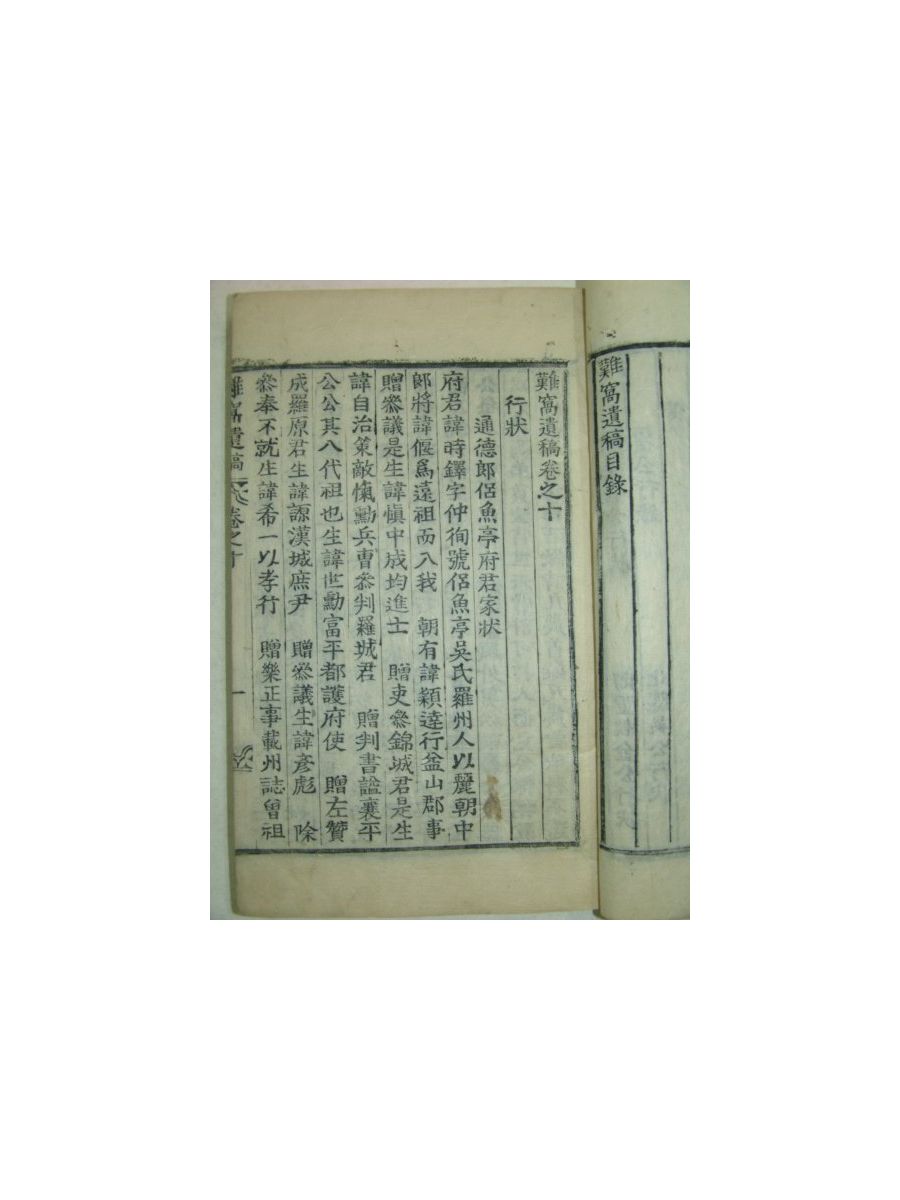 難窩遺稿目錄
難窩遺稿卷之十
行狀
通德郎侶魚亭府君家狀
府君諱時鐸字仲徇號侶魚亭吳氏羅州人以麗朝中
郞將諱偃爲遠祖而入我 朝有諱穎達行益山郡事
贈叅議是生諱愼中成均進士 贈吏叅錦城君是生
諱自治策敵愾勳兵曹叅判羅城君 贈判書謚襄平
公公其八代祖也生諱世勳富平都護府使 贈左贊
成羅原君生諱謜漢城庶尹 贈叅議生諱彦彪 除
叅奉不就生諱希一以孝行 贈樂正事載州誌曾祖
難窩遺稿 卷之十 一